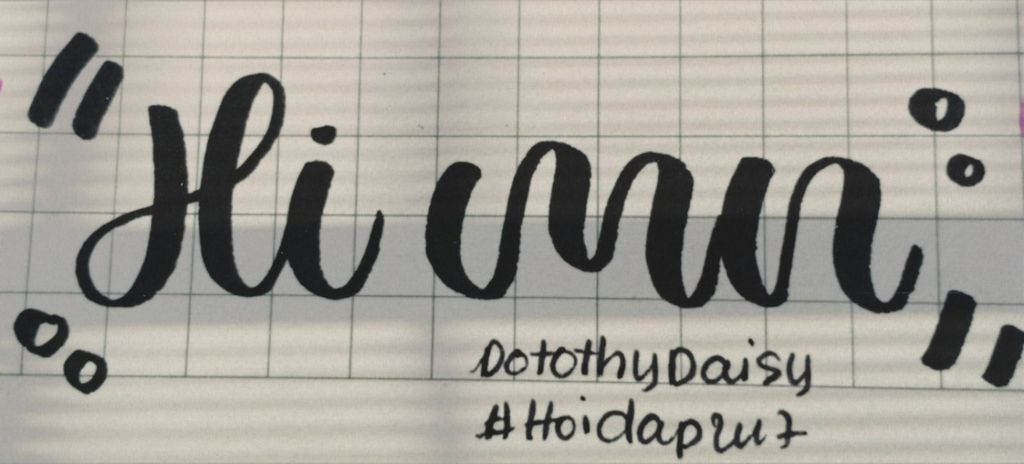 "Hi mn"
DotothyDaisy
#Hoidap247